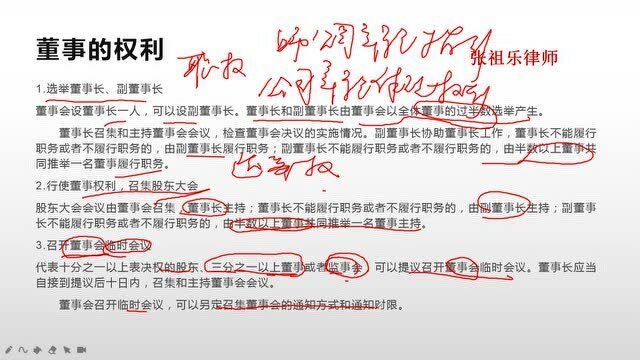 董事的权利
职权
张祖乐律师
1.选举董事长、副董事长
董事会设董事长一人，可以设副董事长。董事长和副董事长由董事会以全体董事的过半数选举产生。
董事长召集和主持董事会会议，检查董事会决议的实施情况。副董事长协助董事长工作，董事长不能履行
职务或者不履行职务的，由副董事长履行职务；副董事长不能履行职务或者不履行职务的，由半数以上董事共
同推举一名董事履行职务。
2.行使董事权利，召集股东大会
股东大会会议由董事会召集，董事长主持；董事长不能履行职务或者不履行职务的，由副董事长主持；副董事
长不能履行职务或者不履行职务的，由半数以上董事共同推举一名董事主持。
3.召开董事会临时会议
代表十分之一以上表决权的股东、三分之一以上董事或者监事会，可以提议召开董事会临时会议。董事长应当
自接到提议后十日内，召集和主持董事会会议。
董事会召开临时会议，可以另定召集董事会的通知方式和通知时限。